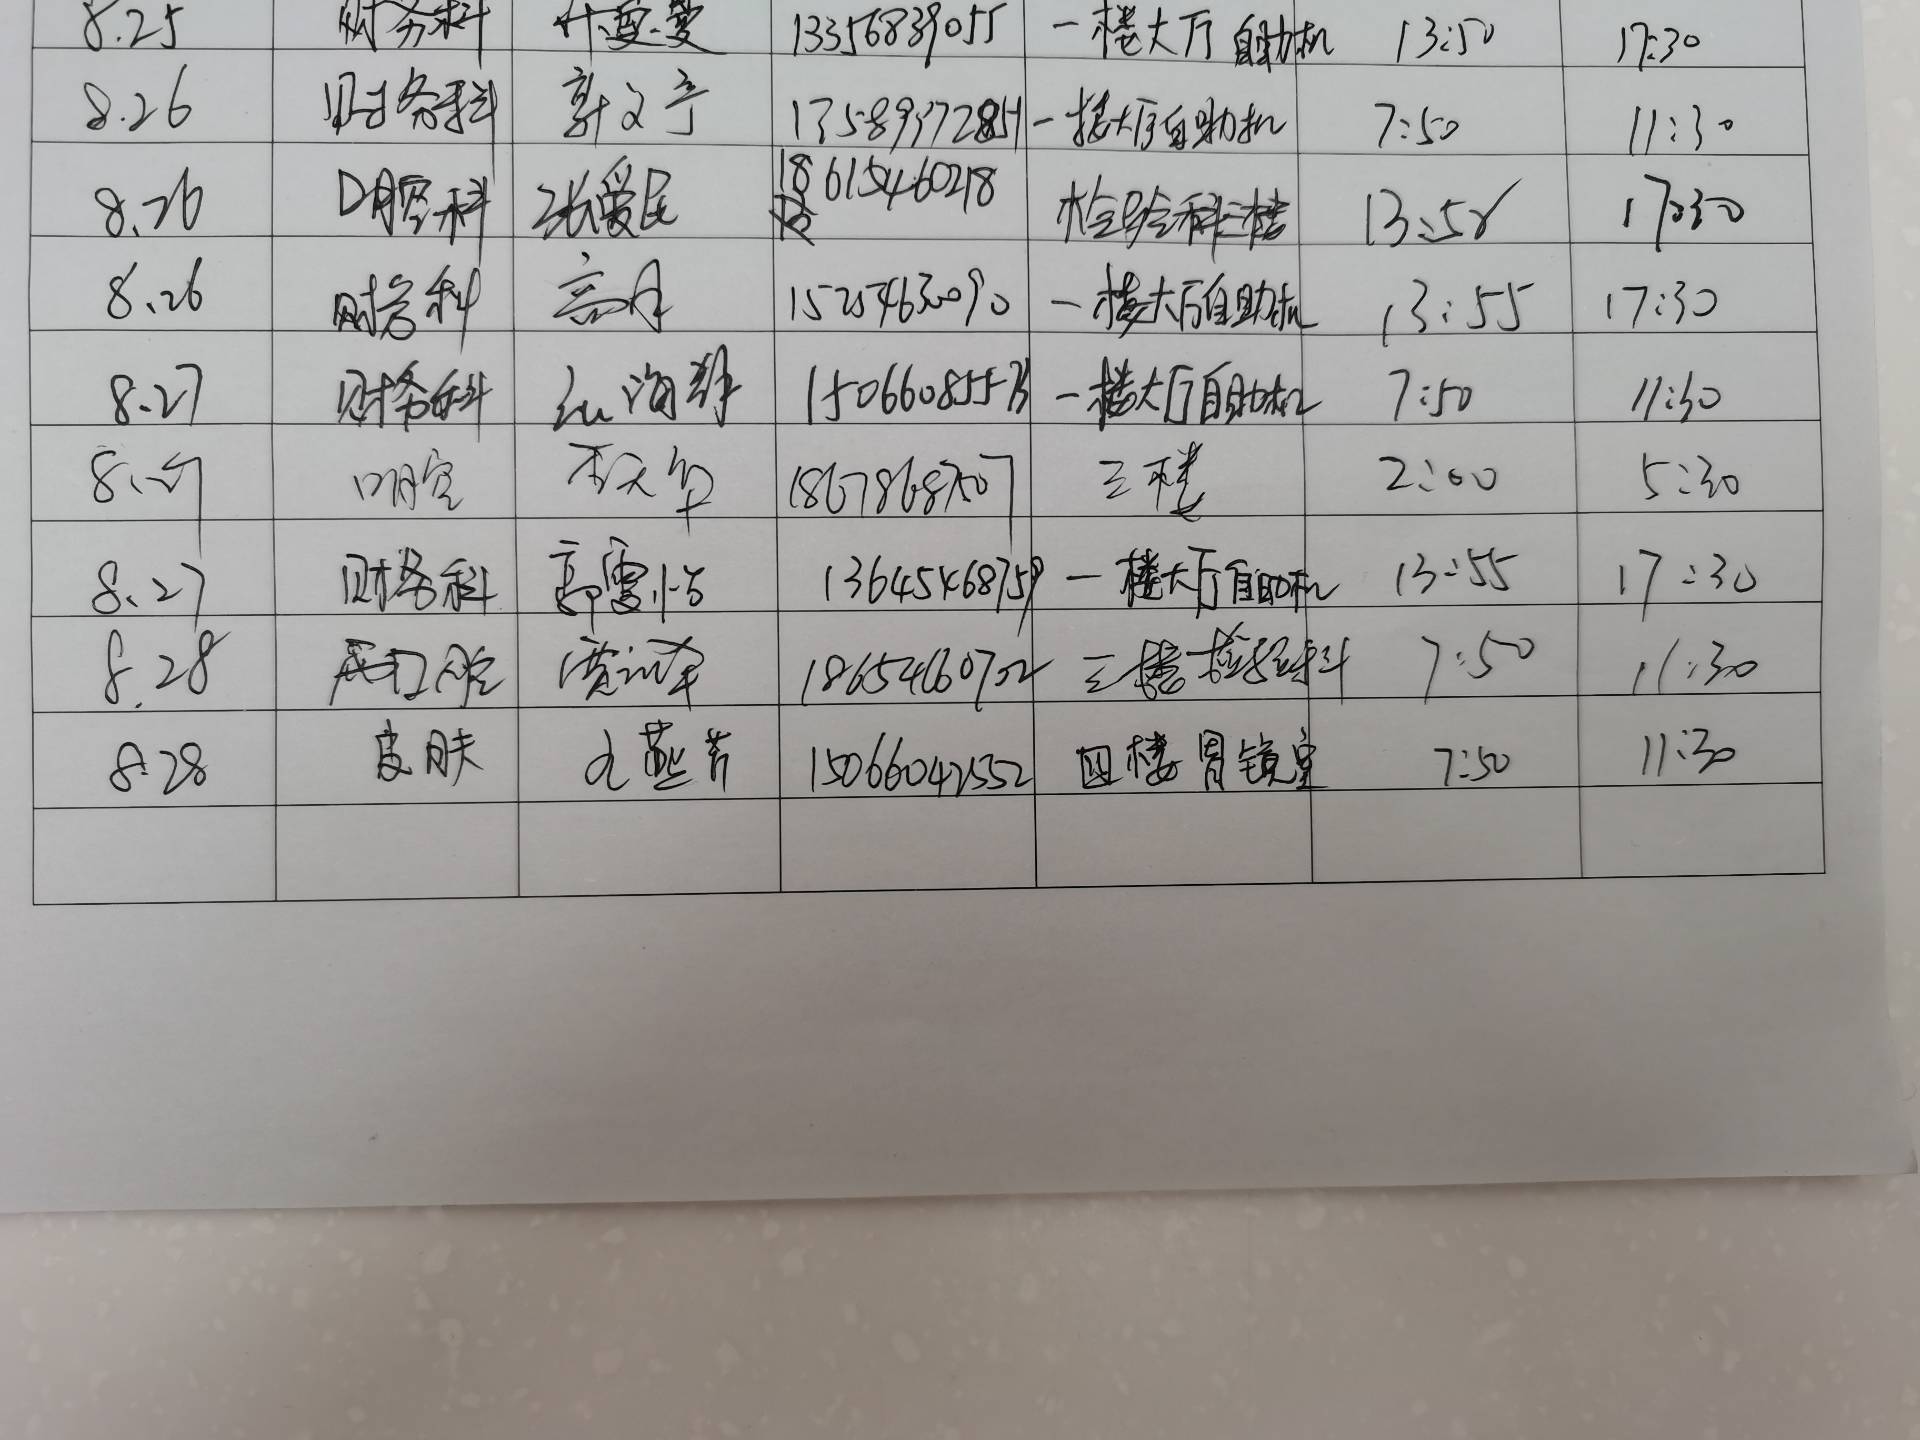 8.25 财务科 13356839055 一楼大厅自助机 13:50 17:30
8.26 财务科 郭文宁 一楼大厅自助机 7:50 11:30
8.26 口腔科 张爱民 18615460218 检验科三楼 13:58 17:30
8.26 财务科 高月 15254630090 一楼大厅自助机 13:55 17:30
8.27 财务科 海群 一楼大厅自助机 7:50 11:30
8.27 口腔 18678687507 三楼 2:00 5:30
8.27 财务科 郭雪怡 13645468759 一楼大厅自助机 13:55 17:30
8.28 口腔 18654660702 三楼检验科 7:50 11:30
8.28 皮肤 15066042552 四楼胃镜室 7:50 11:30